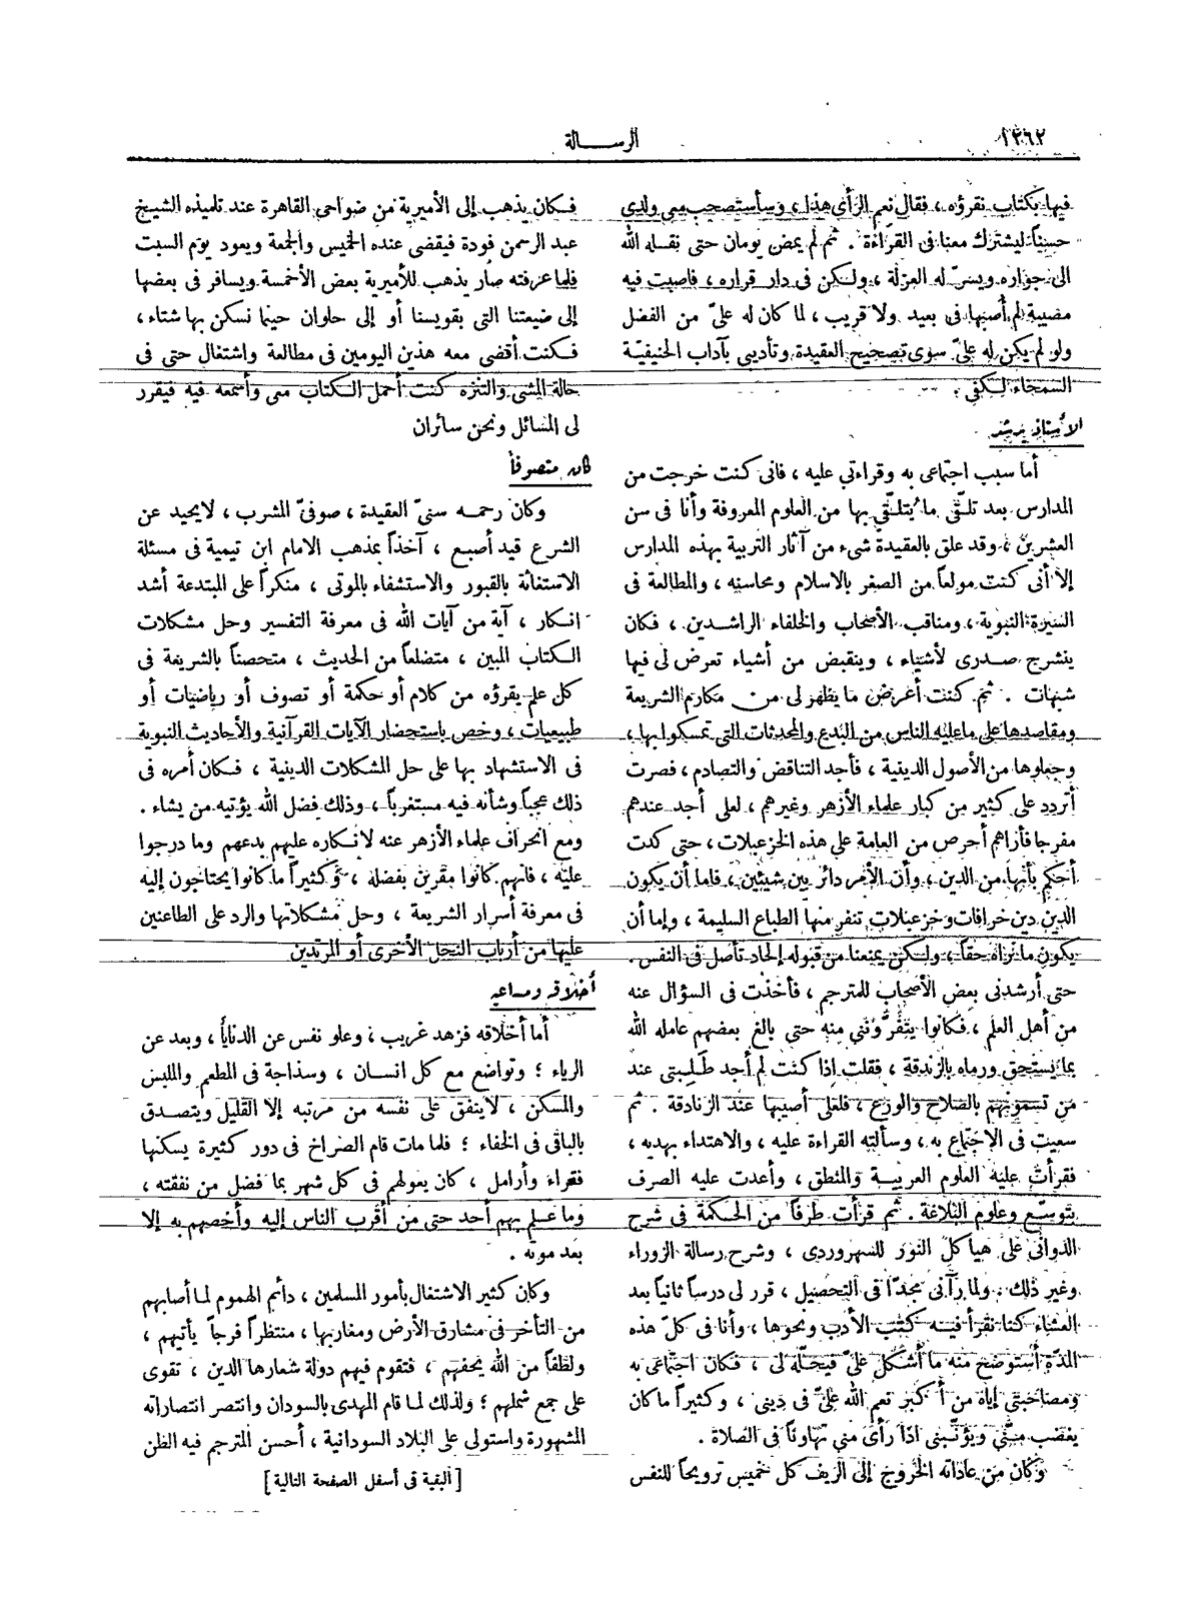 ١٣٦٢
الرسالة
فيها بكتاب نقرؤه ، فقال نعم الرأى هذا ، وسأستصحب معى ولدى
حسيناً ليشترك معنا فى القراءة . ثم لم يمض يومان حتى نقله الله
الى جواره ويسر له العزلة ، ولكن فى دار قراره ، فاصبت فيه
مصيبة لم أصبها فى بعيد ولا قريب ، لما كان له علىّ من الفضل
ولو لم يكن له علىّ سوى تصحيح العقيدة وتأديبى بآداب الحنيفيّة
السمحاء لكفى .
الأستاذ يرشد
أما سبب اجتماعى به وقراءتي عليه ، فانى كنت خرجت من
المدارس بعد تلقّى ما يُتلقّى بها من العلوم المعروفة وأنا فى سن
العشرين ، وقد علق بالعقيدة شىء من آثار التربية بهذه المدارس
إلا أنى كنت مولعاً من الصغر بالاسلام ومحاسنه ، والمطالعة فى
السيرة النبوية ، ومناقب الأصحاب والخلفاء الراشدين ، فكان
ينشرح صدرى لأشياء ، وينقبض من أشياء تعرض لى فيها
شبهات . ثم كنت أعرض ما يظهر لى من مكارم الشريعة
ومقاصدها على ما عليه الناس من البدع والمحدثات التى تمسكوا بها ،
وجعلوها من الأصول الدينية ، فأجد التناقض والتصادم ، فصرت
أتردد على كثير من كبار علماء الأزهر وغيرهم ، لعلى أجد عندهم
مفرجا فأراهم أحرص من العامة على هذه الخزعبلات ، حتى كدت
أحكم بأنها من الدين ، وأن الأمر دائر بين شيئين ، فاما أن يكون
الدين دين خرافات وخزعبلات تنفر منها الطباع السليمة ، وإما أن
يكون ما نراه حقاً ، ولكن يمنعنا من قبوله إلحاد تأصل فى النفس .
حتى أرشدنى بعض الأصحاب للمترجم ، فأخذت فى السؤال عنه
من أهل العلم ، فكانوا ينفّرونني منه حتى بالغ بعضهم عامله الله
بما يستحق ورماه بالزندقة ، فقلت إذا كنت لم أجد طَلِبتى عند
من تسمونهم بالصلاح والورع ، فلعلى أصيبها عند الزنادقة . ثم
سعيت فى الاجتماع به ، وسألته القراءة عليه ، والاهتداء بهديه ،
فقرأت عليه العلوم العربية والمنطق ، وأعدت عليه الصرف
بتوسّع وعلوم البلاغة . ثم قرأت طرفاً من الحكمة فى شرح
الدوانى على هياكل النور للسهروردى ، وشرح رسالة الزوراء
وغير ذلك ، ولما رآنى مجدّا فى التحصيل ، قرر لى درساً ثانياً بعد
العشاء كنا نقرأ فيه كتب الأدب ونحوها ، وأنا فى كلّ هذه
المدّة أستوضح منه ما أشكل علىّ فيحلّه لى ، فكان اجتماعى به
ومصاحبتى إياه من أكبر نعم الله علىّ فى دينى ، وكثيراً ما كان
يغضب منّى ويؤنّبنى اذا رأى منى تهاوناً فى الصلاة .
وكان من عاداته الخروج إلى الريف كل خميس ترويحاً للنفس
فكان يذهب إلى الأميرية من ضواحى القاهرة عند تلميذه الشيخ
عبد الرحمن فودة فيقضى عنده الخميس والجمعة ويعود يوم السبت
فلما عرفته صار يذهب للأميرية بعض الأخمسة ويسافر فى بعضها
إلى ضيعتنا التى بقويسنا أو إلى حلوان حينما نسكن بها شتاء ،
فكنت أقضى معه هذين اليومين فى مطالعة واشتغال حتى فى
حالة المشى والتنزه كنت أحمل الكتاب معى وأسمعه فيه فيقرر
لى المسائل ونحن سائران
كان متصوفاً
وكان رحمه سنىّ العقيدة ، صوفىّ المشرب ، لايحيد عن
الشرع قيد أصبع ، آخذاً بمذهب الامام ابن تيمية فى مسئلة
الاستغاثة بالقبور والاستشفاء بالموتى ، منكراً على المبتدعة أشد
انكار ، آية من آيات الله فى معرفة التفسير وحل مشكلات
الكتاب المبين ، متضلعاً من الحديث ، متحصناً بالشريعة فى
كل علم يقرؤه من كلام أو حكمة أو تصوف أو رياضيات أو
طبيعيات ، وخص باستحضار الآيات القرآنية والأحاديث النبوية
فى الاستشهاد بها على حل المشكلات الدينية ، فكان أمره فى
ذلك عجباً وشأنه فيه مستغرباً ، وذلك فضل الله يؤتيه من يشاء .
ومع انحراف علماء الأزهر عنه لانكاره عليهم بدعهم وما درجوا
عليه ، فانهم كانوا مقرين بفضله ، وكثيراً ما كانوا يحتاجون إليه
فى معرفة أسرار الشريعة ، وحل مشكلاتها والرد على الطاعنين
عليها من أرباب النحل الأخرى أو المرتدين
أخلاقه ومساعيه
أما أخلاقه فزهد غريب ، وعلو نفس عن الدنايا ، وبعد عن
الرياء ؛ وتواضع مع كل انسان ، وسذاجة فى المطعم والملبس
والمسكن ، لاينفق على نفسه من مرتبه إلا القليل ويتصدق
بالباقى فى الخفاء ؛ فلما مات قام الصراخ فى دور كثيرة يسكنها
فقراء وأرامل ، كان يعولهم فى كل شهر بما فضل من نفقته ،
وما علم بهم أحد حتى من أقرب الناس إليه وأخصهم به إلا
بعد موته .
وكان كثير الاشتغال بأمور المسلمين ، دائم الهموم لما أصابهم
من التأخر فى مشارق الأرض ومغاربها ، منتظراً فرجاً يأتيهم ،
ولطفاً من الله يحفهم ، فتقوم فيهم دولة شعارها الدين ، تقوى
على جمع شملهم ؛ ولذلك لما قام المهدى بالسودان وانتصر انتصاراته
المشهورة واستولى على البلاد السودانية ، أحسن المترجم فيه الظن
[البقية فى أسفل الصفحة التالية]